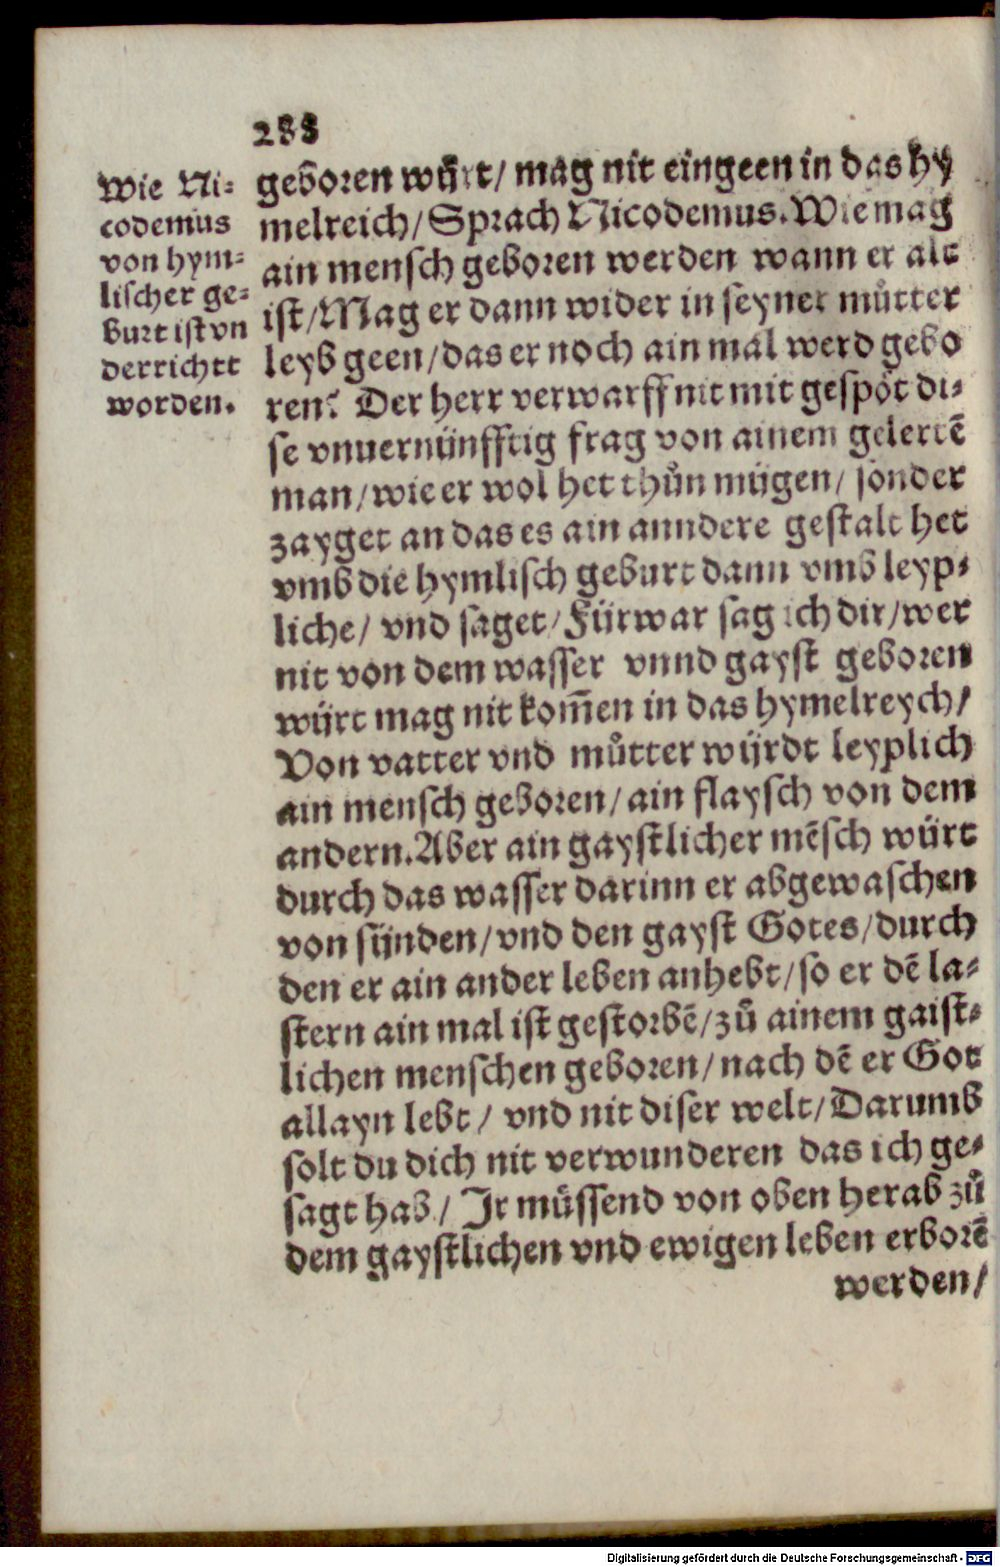 288
Wie Ni⸗
codemus
von hym⸗
lischer ge⸗
burt ist vn
derrichtt
worden.
geboren würt/ mag nit eingeen in das hy
melreich/ Sprach Nicodemus. Wie mag
ain mensch geboren werden wann er alt
ist/ Mag er dann wider in seyner můtter
leyb geen/ das er noch ain mal werd gebo
ren? Der herr verwarff nit mit gespöt di⸗
se vnuernünfftig frag von ainem gelertē
man/ wie er wol het thůn mügen/ sonder
zayget an das es ain anndere gestalt het
vmb die hymlisch geburt dann vmb leyp⸗
liche/ vnd saget/ Fürwar sag ich dir/ wer
nit von dem wasser vnnd gayst geboren
würt mag nit kom̄en in das hymelreych/
Von vatter vnd můtter würdt leyplich
ain mensch geboren/ ain flaysch von dem
andern. Aber ain gaystlicher mēsch würt
durch das wasser darinn er abgewaschen
von sünden/ vnd den gayst Gotes/ durch
den er ain ander leben anhebt/ so er dē la⸗
stern ain mal ist gestorbē/ zů ainem gaist⸗
lichen menschen geboren/ nach dē er Got
allayn lebt/ vnd nit diser welt/ Darumb
solt du dich nit verwunderen das ich ge⸗
sagt hab/ Ir müssend von oben herab zů
dem gaystlichen vnd ewigen leben erborē
werden/
Digitalisierung gefördert durch die Deutsche Forschungsgemeinschaft - DFG